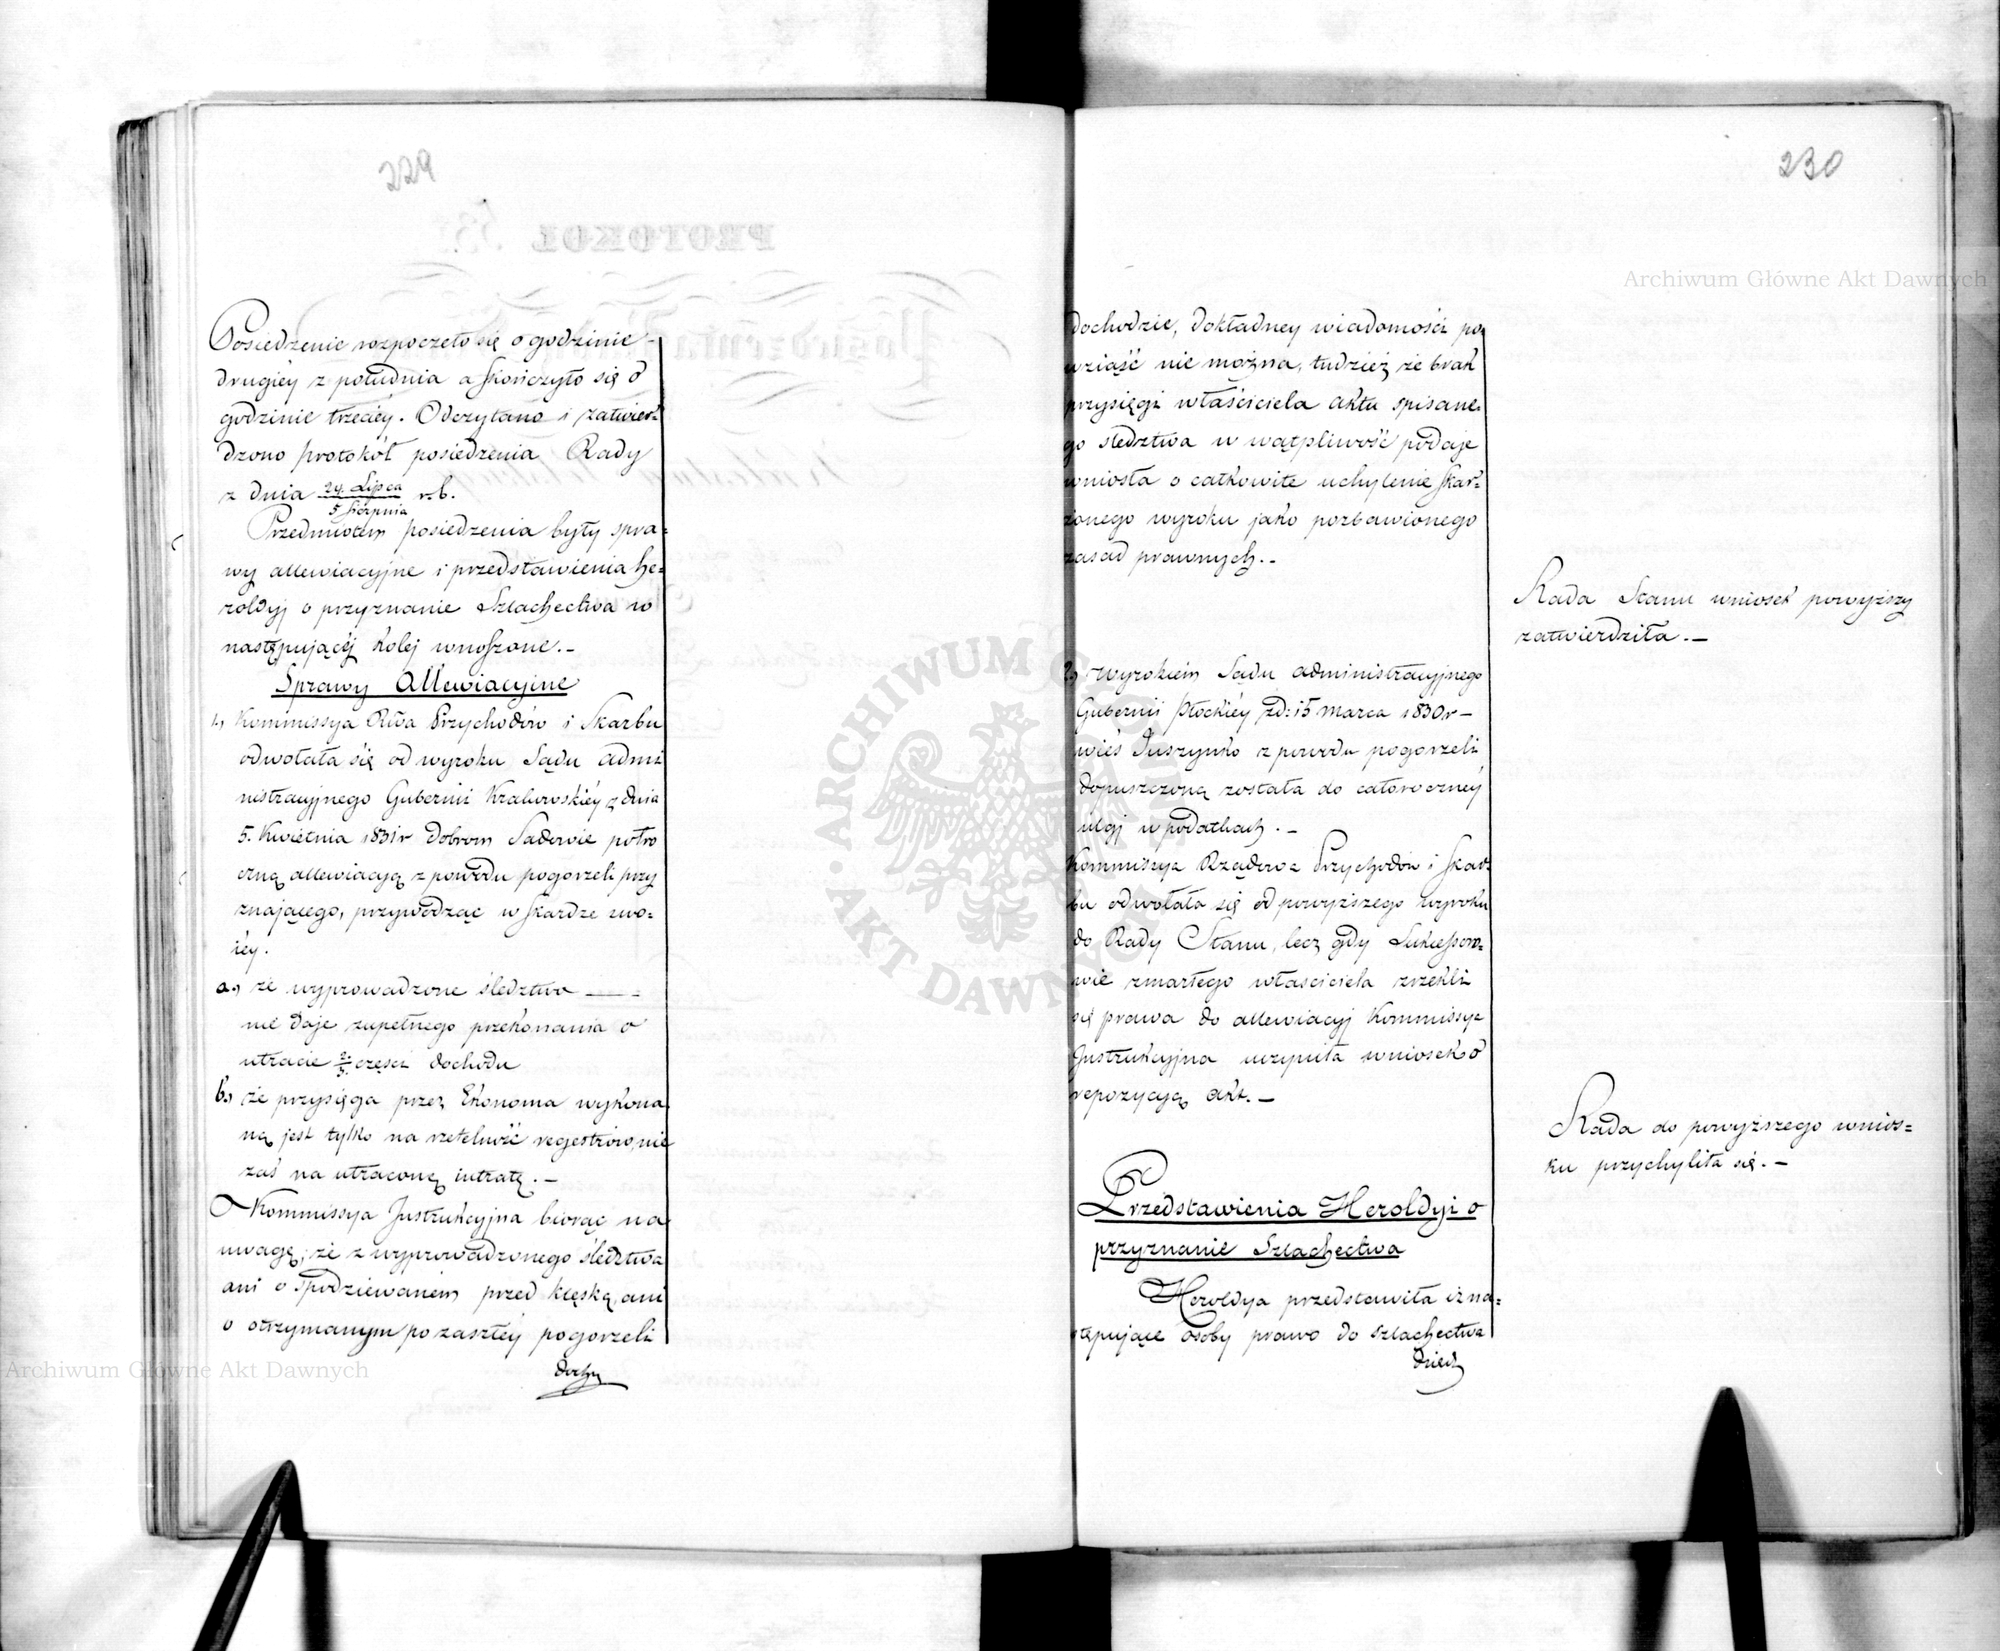 229
Posiedzenie rozpoczeło się o godzinie
drugiéy z południa a skończyło się o
godzinie trzeciéy. Odczytano i zatwier-
dzono protokół posiedzenia Rady
z dnia 24 Lipca / 5 Sierpnia r. b.
Przedmiotem posiedzenia były spra-
wy allewiacyjne i przedstawienia He-
roldyj o przyznanie Szlachectwa w
następującéj kolej wnoszone.–
Sprawy Allewiacyine
1., Kommissya Rwa Przychodów i Skarbu
odwołała się od wyroku Sądu admi
nistracyjnego Gubernii Krakowskiéy z dnia
5. Kwietnia 1831 r dobrom Sadowie półro
czną allewiacyą z powodu pogorzeli przy
znającego, przywodząc w skardze swo-
iéy.
a., że wyprowadzone śledztwo
nie daje zupełnego przekonania o
utracie 2/3 części dochodu
b., że przysięga przez Ekonoma wykona
ną jest tylko na rzetelność regestrów, nie
zaś na utraconę intratę.–
Kommissya Instrukcyjna biorąc na
uwagę, że z wyprowadzonego śledztwa
ani o spodziewanem przed klęską, ani
o otrzymanym po zaszłéy pogorzeli
docho
230
dochodzie, dokładney wiadomości po
wziąść nie można, tudzież że brak
przysięgi właściciela aktu spisane-
go śledztwa w wątpliwość podaje
wniosła o całkowite uchylenie skar-
żonego wyroku jako pozbawionego
zasad prawnych.–
Rada Stanu wniosek powyższy
zatwierdziła.–
2, Wyrokiem Sądu administracyjnego
Gubernii Płockiéy z d: 15 Marca 1830 r –
wieś Juszynko z powodu pogorzeli
dopuszczoną została do całoroczney
ulgi w podatkach.–
Kommissya Rządowa Przychodów i Skar-
bu odwołała się od powyższego wyroku
do Rady Stanu, lecz gdy Sukcessoro-
wie zmarłego właściciela zrzekli
się prawa do allewiacyj Kommissya
Instrukcyjna uczyniła wniosek o
repozycyą akt.–
Rada do powyższego wnios-
ku przychyliła się.–
Przedstawienia Heroldyi o
przyznanie Szlachectwa
Heroldya przedstawiła iż na-
stępujące osoby prawo do szlachectwa
dziedz
Archiwum Główne Akt Dawnych
Archiwum Główne Akt Dawnych
ARCHIWUM GŁÓWNE AKT DAWNYCH